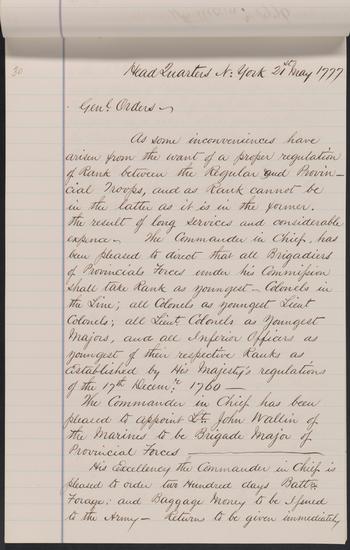 30
Head Quarters N: York 21st May 1777
Genl. Orders
As some inconveniences have
arisen from the want of a proper regulation
of Rank between the Regular and Provin-
cial Troops, and as Rank cannot be
in the latter as it is in the former.
the result of long services and considerable
expence - The Commander in Chief, has
been pleased to direct that all Brigadiers
of Provincials Forces under his Commission
shall take Rank as youngest - Colonels in
the Line; all Colonels as youngest Lieut
Colonels; all Lieut. Colonels as Youngest
Majors, and all Inferior Officers as
youngest of their respective Ranks as
established by His Majesty's regulations
of the 17th Decemr. 1760 -
The Commander in Chief has been
pleased to appoint Lt. John Wallin of
the Marines to be Brigade Major of
Provincial Forces
His Excellency the Commander in Chief is
pleased to order two Hundred days Batt:
Forage: and Baggage Money to be Issued
to the Army - Returns to be given immediately